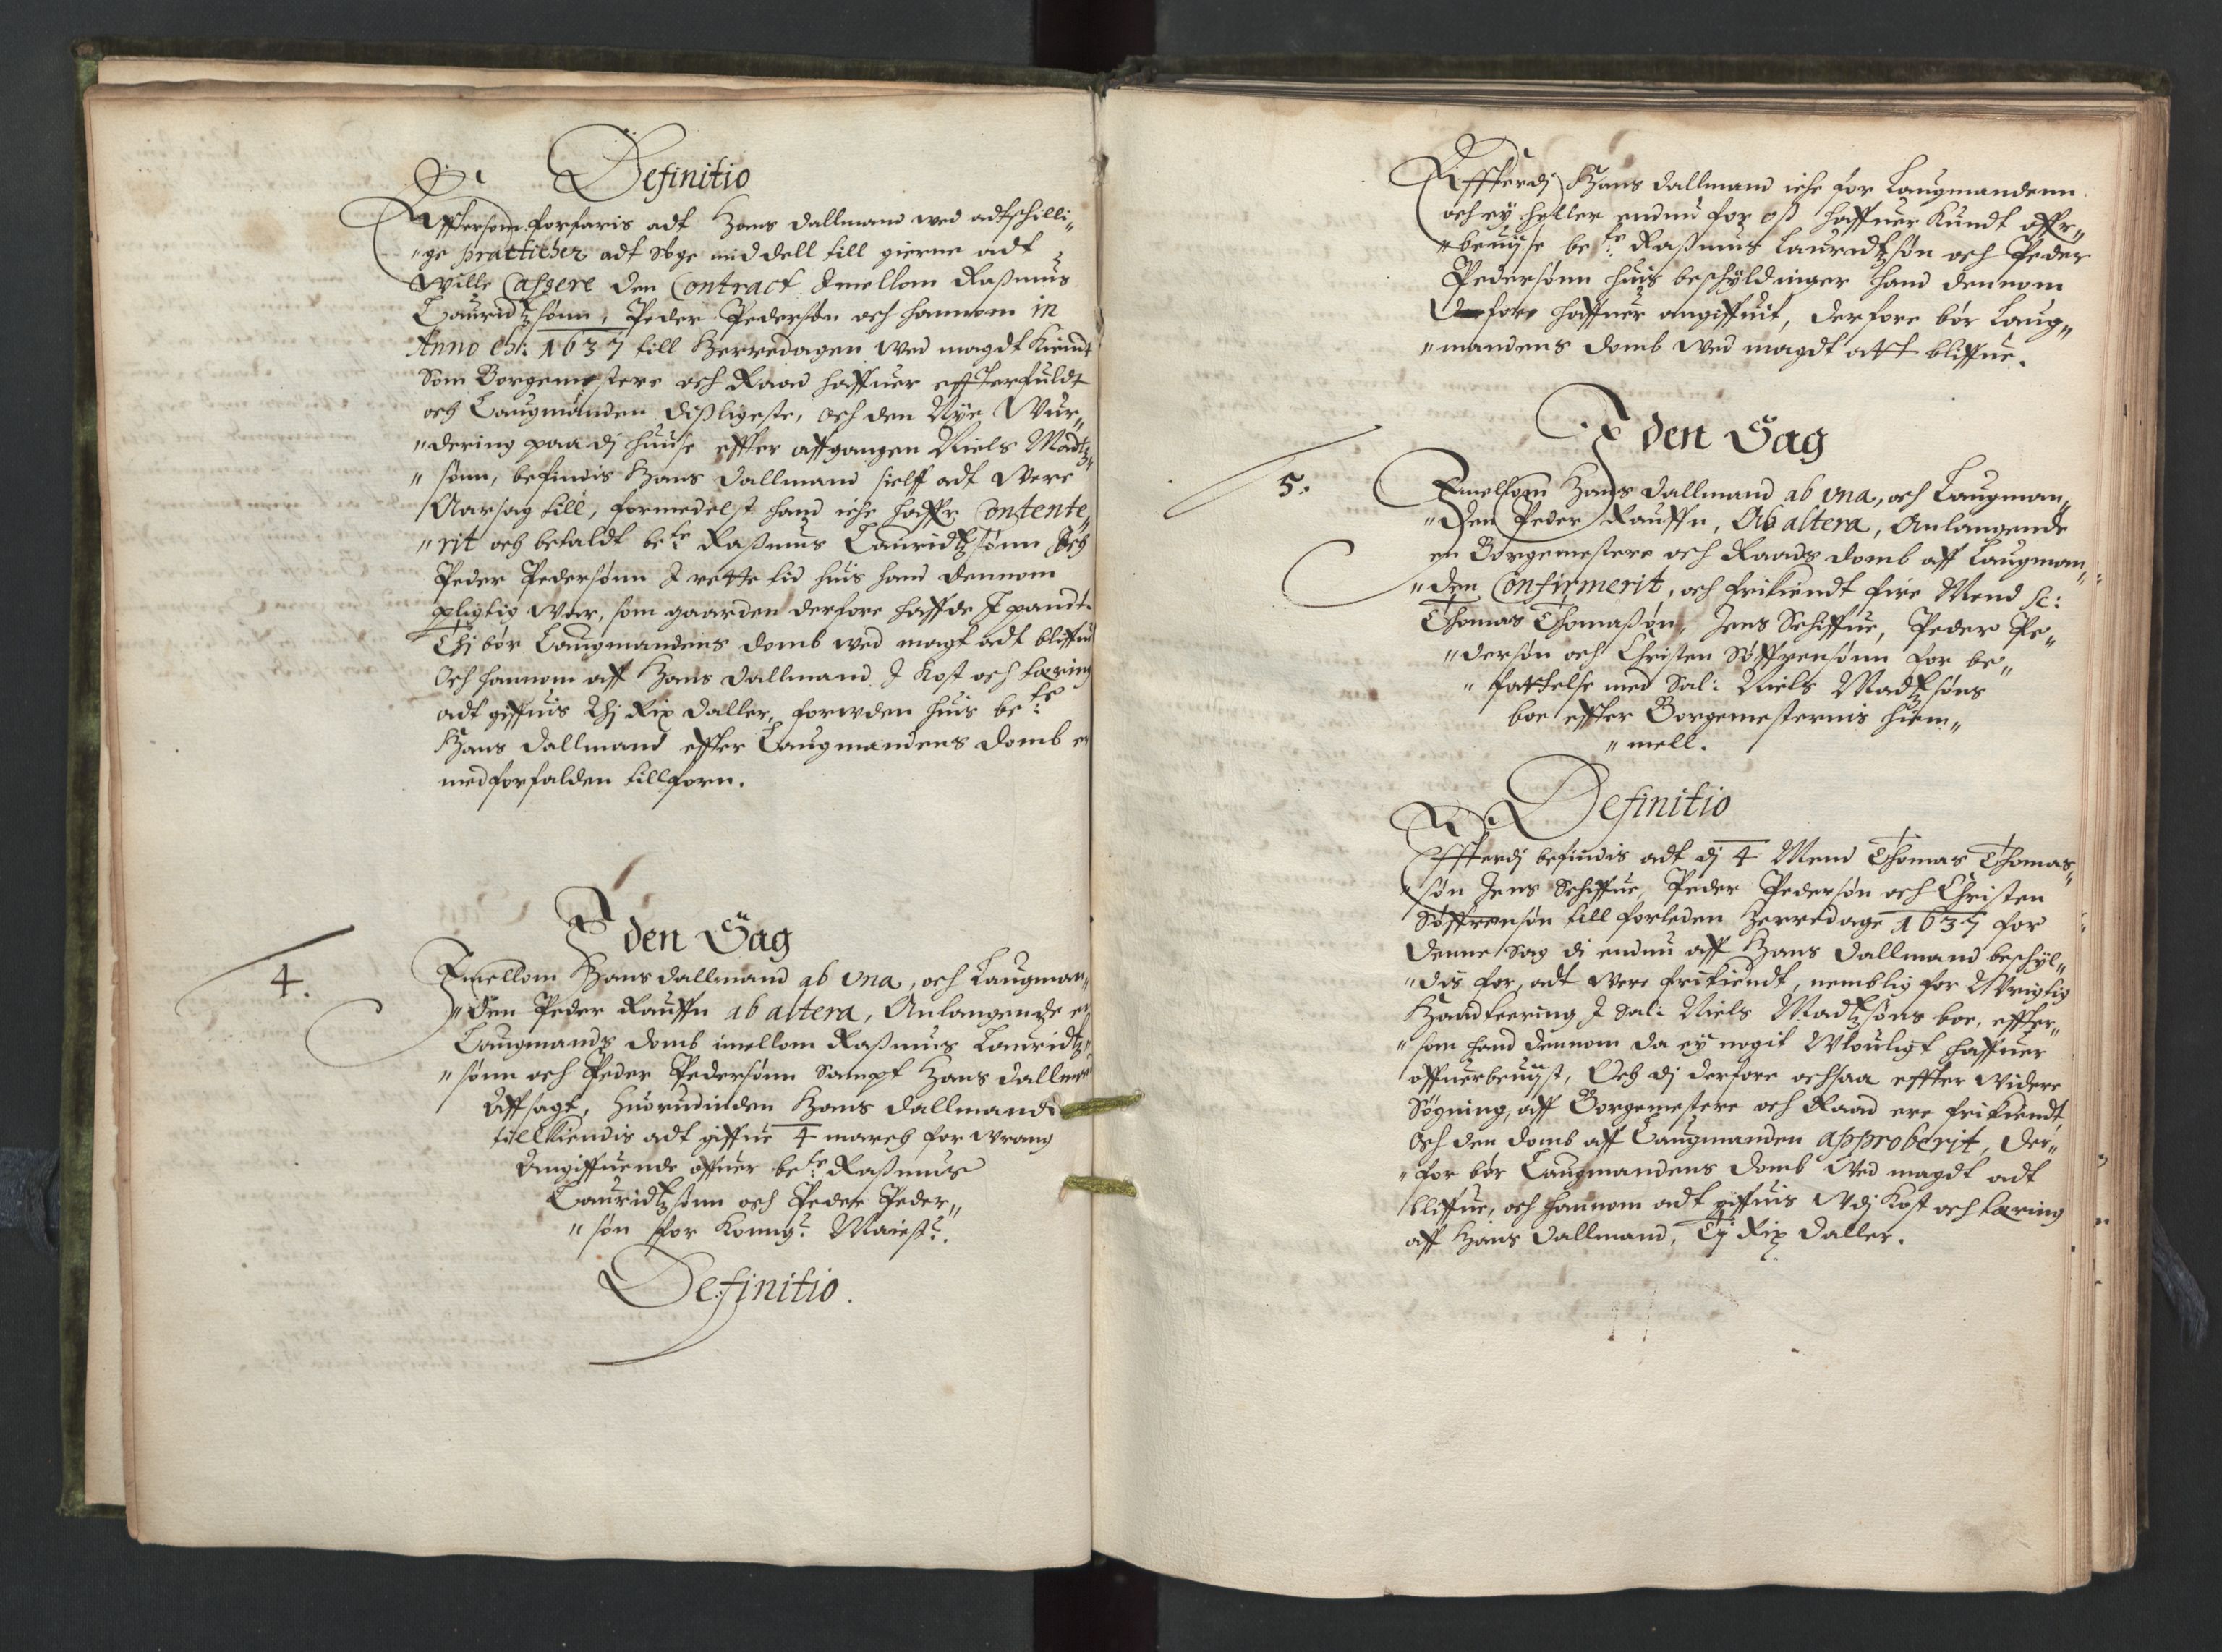 Definitio
Efftersom forfaris adt Hans Dallmand wed adtschilli„
„ge practicher adt Søge middell till gierne adt
wille Caszere den Contract Emellom Rasmus
Lauridtzsønn, Peder Pedersøn och hannom in
Anno Chr: 1637 till Herredagen wed magdt Kiendt
Som Borgemestere och Raad haffuer effterfuldt
och Laugmanden disligeste, och den Nye Wur„
„dering paa dj huuse effter affgangen Niels Madtz„
„sønn, befindis Hans Dallmand sielff adt Were
Aarsag till, formedelst hand iche haffr Contente„
„rit och betaldt bete Rasmus Lauridtzsønn Och
Peder Pedersønn I rette tid huis hand dennom
pligtig war, som gaarden derfore haffde I pandt.
Thi bør Laugmandens domb wed magt adt bliffue
Och hannom aff Hans Dallmand I Kost och tæring
adt giffuis Thi Rix Daller, forwden huis bete
Hans Dallmand effter Laugmandens Domb er
medforfalden tillforn.
I den Sag
4.
Emellom Hans Dallmand ab una, och Laugman„
„den Peder Rauffn ab altera, Anlangende en
Laugmands domb imellom Rasmus Lauridtz„
„sønn och Peder Pedersønn Sampt Hans Dallmand
Affsagt, huorudinden Hans Dallmand
tillkiendis adt giffue 4 march for wrang
Angiffuende offuer bete Rasmus
Lauridtzsønn och Peder Peder„
„søn for Konng: Maiest:.
Definitio.
Effterdj Hans Dallmand iche for Laugmandenn
och ey heller endnu for oss haffuer Kundt offr„
„beuyse bete Rasmus Lauridtzsøn och Peder
Pedersønn huis beschyldninger hand dennom
fore haffuer angiffuit, derfore bør Laug„
„mandens domb wed magdt att bliffue.
I den Sag
5.
Emellom Hans Dallmand ab una, och Laugman„
„den Peder Rauffn, Ab altera, Anlangende
en Borgemestere och Raads domb aff Laugman„
„den Confirmerit, och frikiendt fire Mend sc:
Thomas Thomasøn, Jens Schiffue, Peder Pe„
„dersøn och Christen Søffrensønn for be„
„fattelse med Sal: Niels Madtzsøns
boe effter Borgemesternis hiem„
„mell.
Definitio
Effterdj befindis adt dj 4 Mend Thomas Thomas„
„søn Jens Schiffue, Peder Pedersøn och Christen
Søffrensøn till forleden Herredage 1637 for
denne Sag di endnu aff Hans Dallmand beschyl„
„dis for, adt were frikiendt, nemblig for Wrigtig
Handteering I Sal: Niels Madtzsøns boe, effter„
„som hand dennom da ey nogit Wlouligt haffuer
offuerbeuyst, Och dj derfore ochsaa effter widere
Søgning, aff Borgemestere och Raad ere frikiendt,
Och den domb aff Laugmanden approberit, Der„
„for bør Laugmandens domb wed magdt adt
bliffue, och hannom adt giffuis Wdj Kost och tæring
aff Hans Dallmand, Tj Rix Daller.